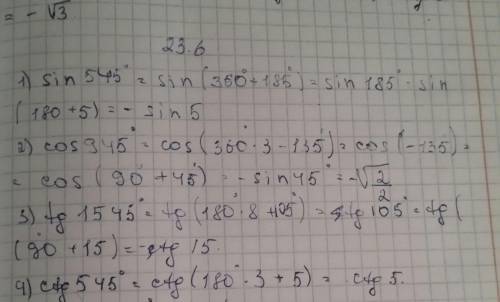 = - √3
23.6
1) sin 545° = sin (360° + 185°) = sin 185° · sin
(180 + 5) = - sin 5
2) cos 945° = cos (360° · 3 - 135°) = cos (-135) =
= cos (90° + 45°) = - sin 45° = -√2/2
3) tg 1545° = tg (180° · 8 + 105°) = tg 105° = tg (
(90° + 15) = - ctg 15.
4) ctg 545° = ctg (180° · 3 + 5) = ctg 5.